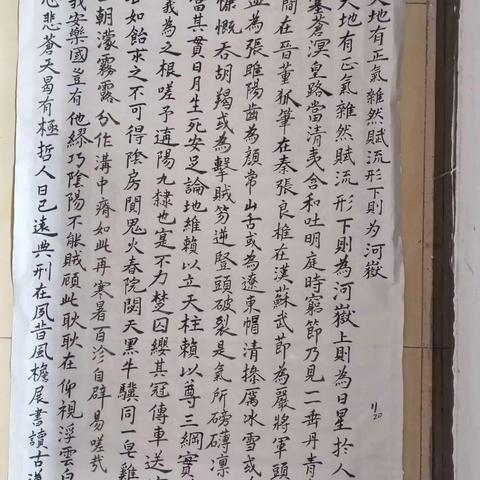 天地有正氣雜然賦流形下則为河嶽
天地有正氣雜然賦流形下則為河嶽上則為日星於人
塞蒼溟皇路當清夷含和吐明庭時窮節乃見一垂丹青
在晉董狐筆在秦張良椎在漢蘇武節為嚴將軍頭
血為張睢陽齒為顏常山舌或為遼東帽清操厲冰雪或
慷慨吞胡羯或為擊賊笏逆豎頭破裂是氣所磅礴凜
當其貫日月生死安足論地維賴以立天柱賴以尊三綱實
義為之根嗟予遘陽九隸也寔不力楚囚纓其冠傳車送
如飴求之不可得陰房闃鬼火春院閟天黑牛驥同一皂雞
一朝濛霧露分作溝中瘠如此再寒暑百沴自辟易嗟哉
我安樂國豈有他繆巧陰陽不能賊顧此耿耿在仰視浮雲白
心悲蒼天曷有極哲人日已遠典刑在夙昔風檐展書讀古道
11/20